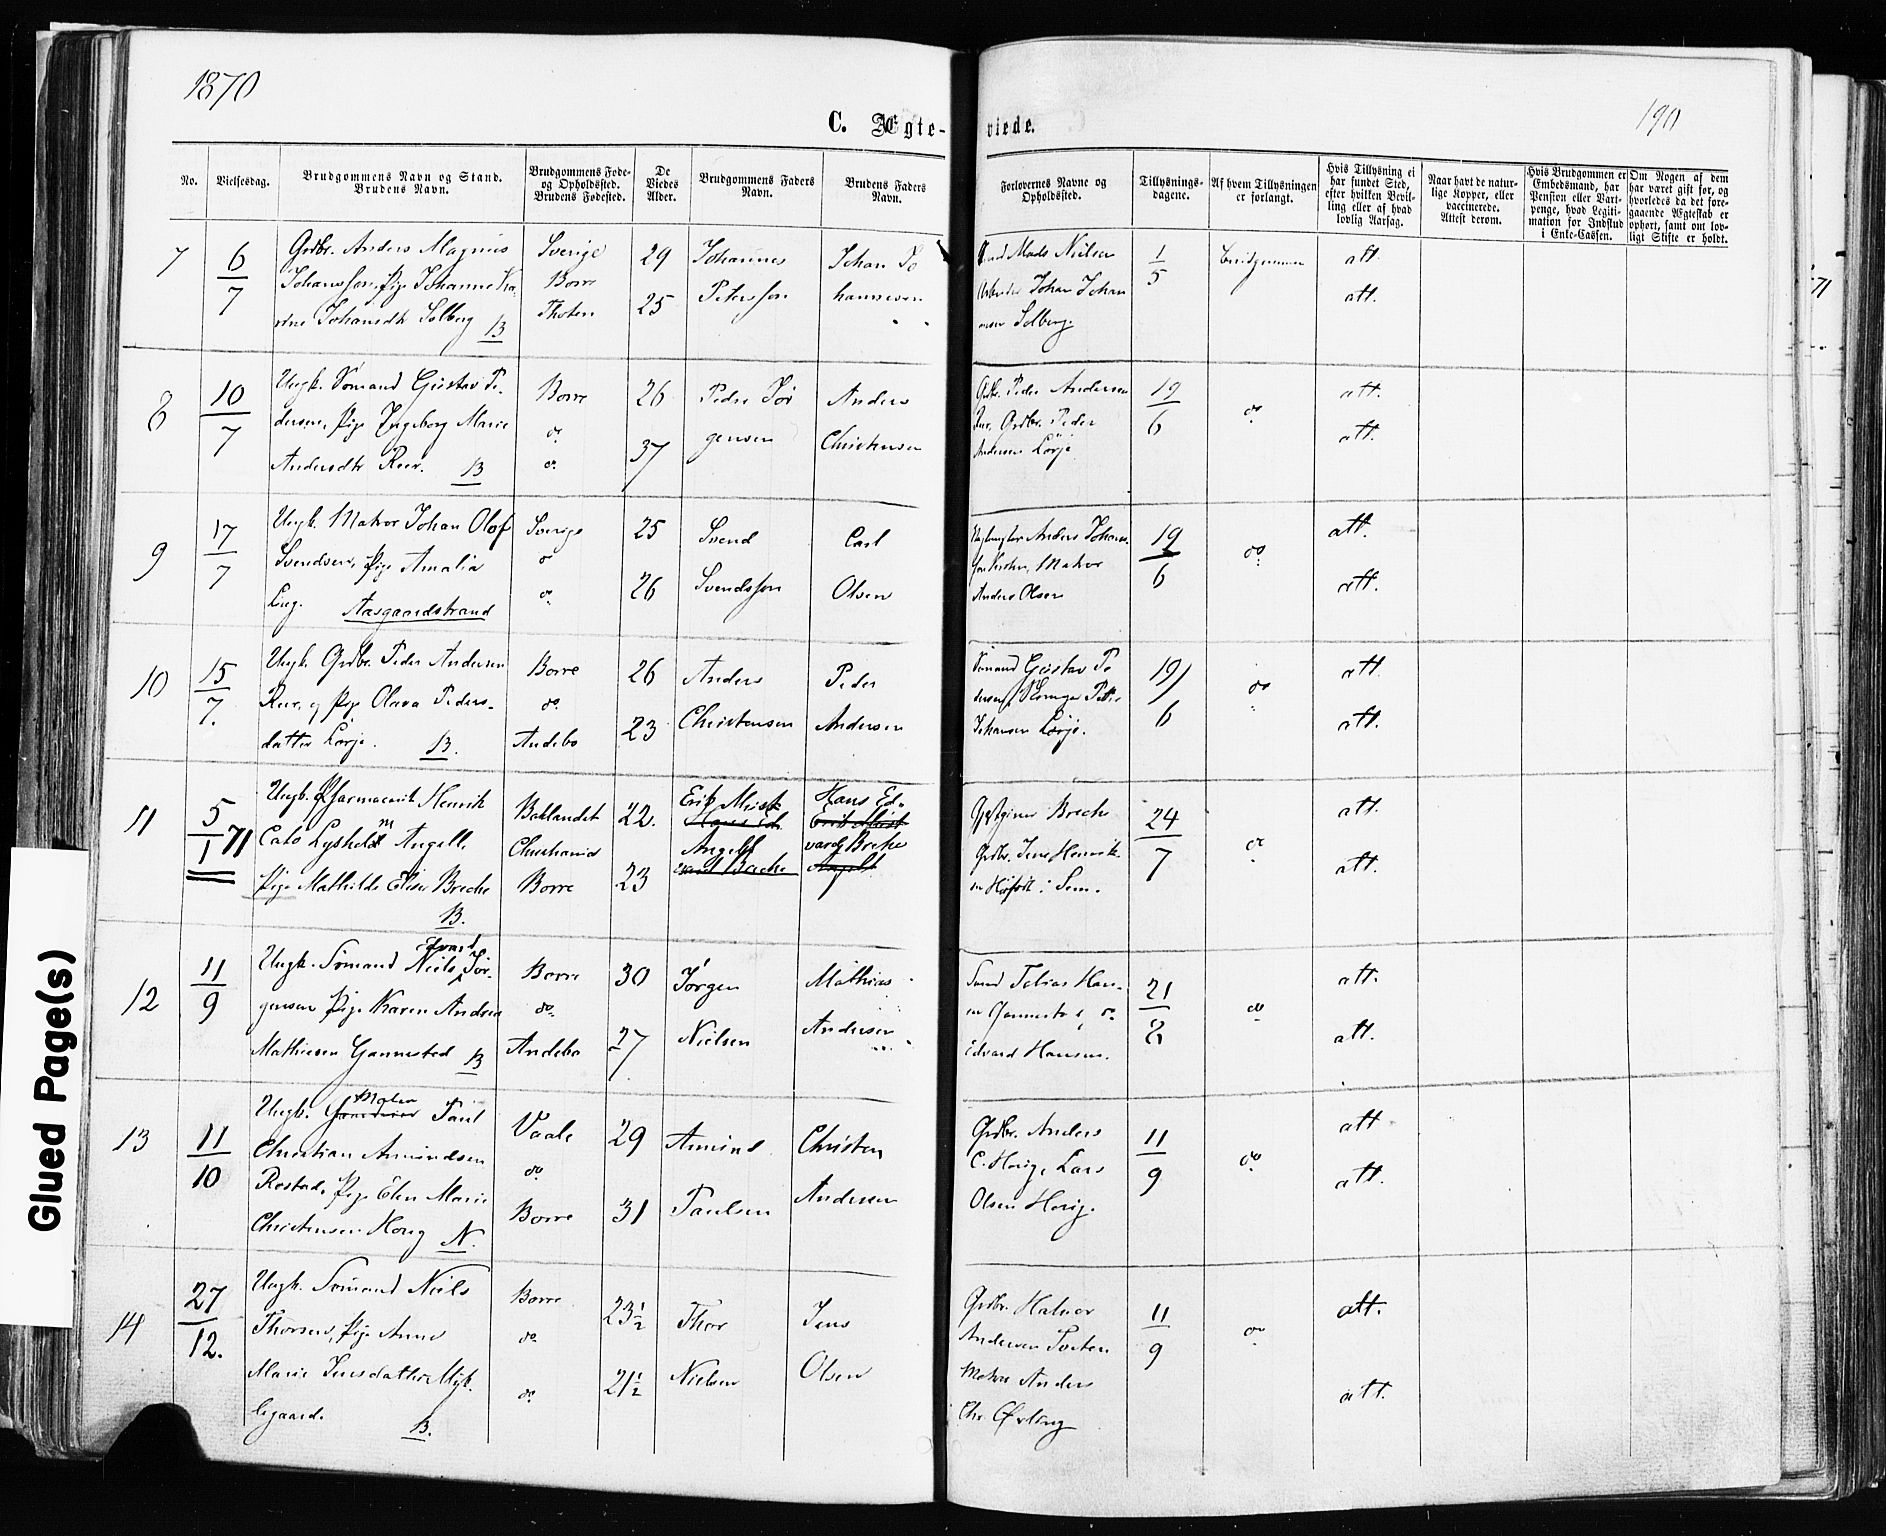 1870
190
C. Ægte-
viede.
No.
Vielsesdag.
Brudgommens Navn og Stand.
Brudens Navn.
Brudgommens Føde-
og Opholdssted.
Brudens Fødested.
De
Viedes
Alder.
Brudgommens Faders
Navn.
Brudens Faders
Navn.
Forlovernes Navne og
Opholdssted.
Tillysnings-
dagene.
Af hvem Tillysningen
er forlangt.
Hvis Tillysning ei
har fundet Sted,
efter hvilken Bevil-
ling eller af hvad
lovlig Aarsag.
Naar havt de natur-
lige Kopper, eller
vaccinerede.
Attest derom.
Hvis Brudgommen er
Embedsmand, har
Pension eller Vart-
penge, hvad Legiti-
mation for Indskud
i Enke-Cassen.
Om Nogen af dem
har været gift før, og
hvorledes da det fore-
gaaende Ægteskab er
ophørt, samt om lov-
ligt Skifte er holdt.
7
6
7
Grdbr. Anders Magnus
Johansson, Pige Johanne Ka-
rine Johansdtr Solberg B
Sverige
Borre
Thoten
29
25
Johannes
Petersson
Johan Jo
hannesen
Mads Nielsen
Johan Johan
nesen Solberg.
1
5
Brudgommen
att.
att.
8
10
7
Ungk. Sømand Gustav Pe-
dersen, Pige Ingeborg Marie
Andersdtr Rør. B
Borre
do
do.
26
37
Peder Jør
gensen
Anders
Christensen
Grdbr. Peder Andersen
Rør, Grdbr. Peder
Andersen Lørje
19
6
do
att.
att.
9
17
7
Ungk. Matros Johan Olof
Svendsen, Pige Amalia
Aasgaardstrand
Sverige
do
do.
25
26
Svend
Svendsson
Carl
Olsen
Anders Johans-
son Matros
Anders Olsen
19
6
do
att.
att.
10
15
7.
Ungk. Grdbr. Peder Andersen
Rør, og Pige Olava Peders-
datter Lørje. B.
Borre
do.
Andebo
26
23
Anders
Christensen
Peder
Andersen
Sømand Gustav Pe
dersen,
Johansen Lørje.
19
6
do
att.
att.
11
5
1 71
Ungk. Pharmaceut Henrik
Cato Lysholm Angell,
Pige Mathilde Elise Breche
B.
Baklandet
Christiania
Borre
22.
23
Erik Must
Hans Ed
Angell
vard Breche
Hans Ed-
Erik Must
vard Breche
Angell
Gjæstgiver Breche
Grdbr. Jens Henrik-
sen i Sem.
24
7
do
att.
att.
12
11
9
Edvard
Ungk. Sømand Niels Jør-
gensen Pige Karen Andrea
Mathiesen Gannestad B
Borre
do.
Andebo
30
27
Jørgen
Nielsen
Mathias
Andersen
Tobias Han-
sen Gannestad,
Edvard Hansen.
21
8
do
att.
att.
13
11
10
Maler
Ungk. Paul
Christian Amundsen
Rostad, Pige Elen Marie
Christensen Horig N.
Vaale
do
Borre
29
31
Amund
Paulsen
Christen
Andersen
Grdbr. Anders
C. Horig, Lars
Olsen Horig.
11
9
do
att
att.
14
27
12.
Ungk. Sømand Niels
Thorsen, Pige Anne
Marie Jensdatter Myk-
legaard. B.
Borre
do.
do.
23½
21½
Thor
Nielsen
Jens
Olsen
Grdbr. Halvor
Andersen
Matros Anders
Chr
11
9
do
att.
att.
71
Glued Page(s)